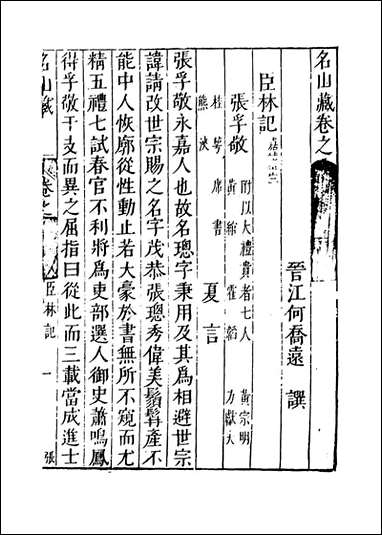 名山藏卷之
晉江何喬遠 譔
臣林記
張孚敬 附以大禮貴者七人
桂萼 席書 黃綰 霍韜 黃宗明
熊浹 方獻夫
夏言
張孚敬永嘉人也故名璁字秉用及其為相避世宗
諱請改世宗賜之名字茂恭張璁秀偉美鬚髯產不
能中人恢廓從性動止若大豪於書無所不窺而尤
精五禮七試春官不利將為吏部選人御史蕭鳴鳳
得孚敬干支而異之屈指曰從此而三載當成進士
名山藏 卷之 臣林記 一 張